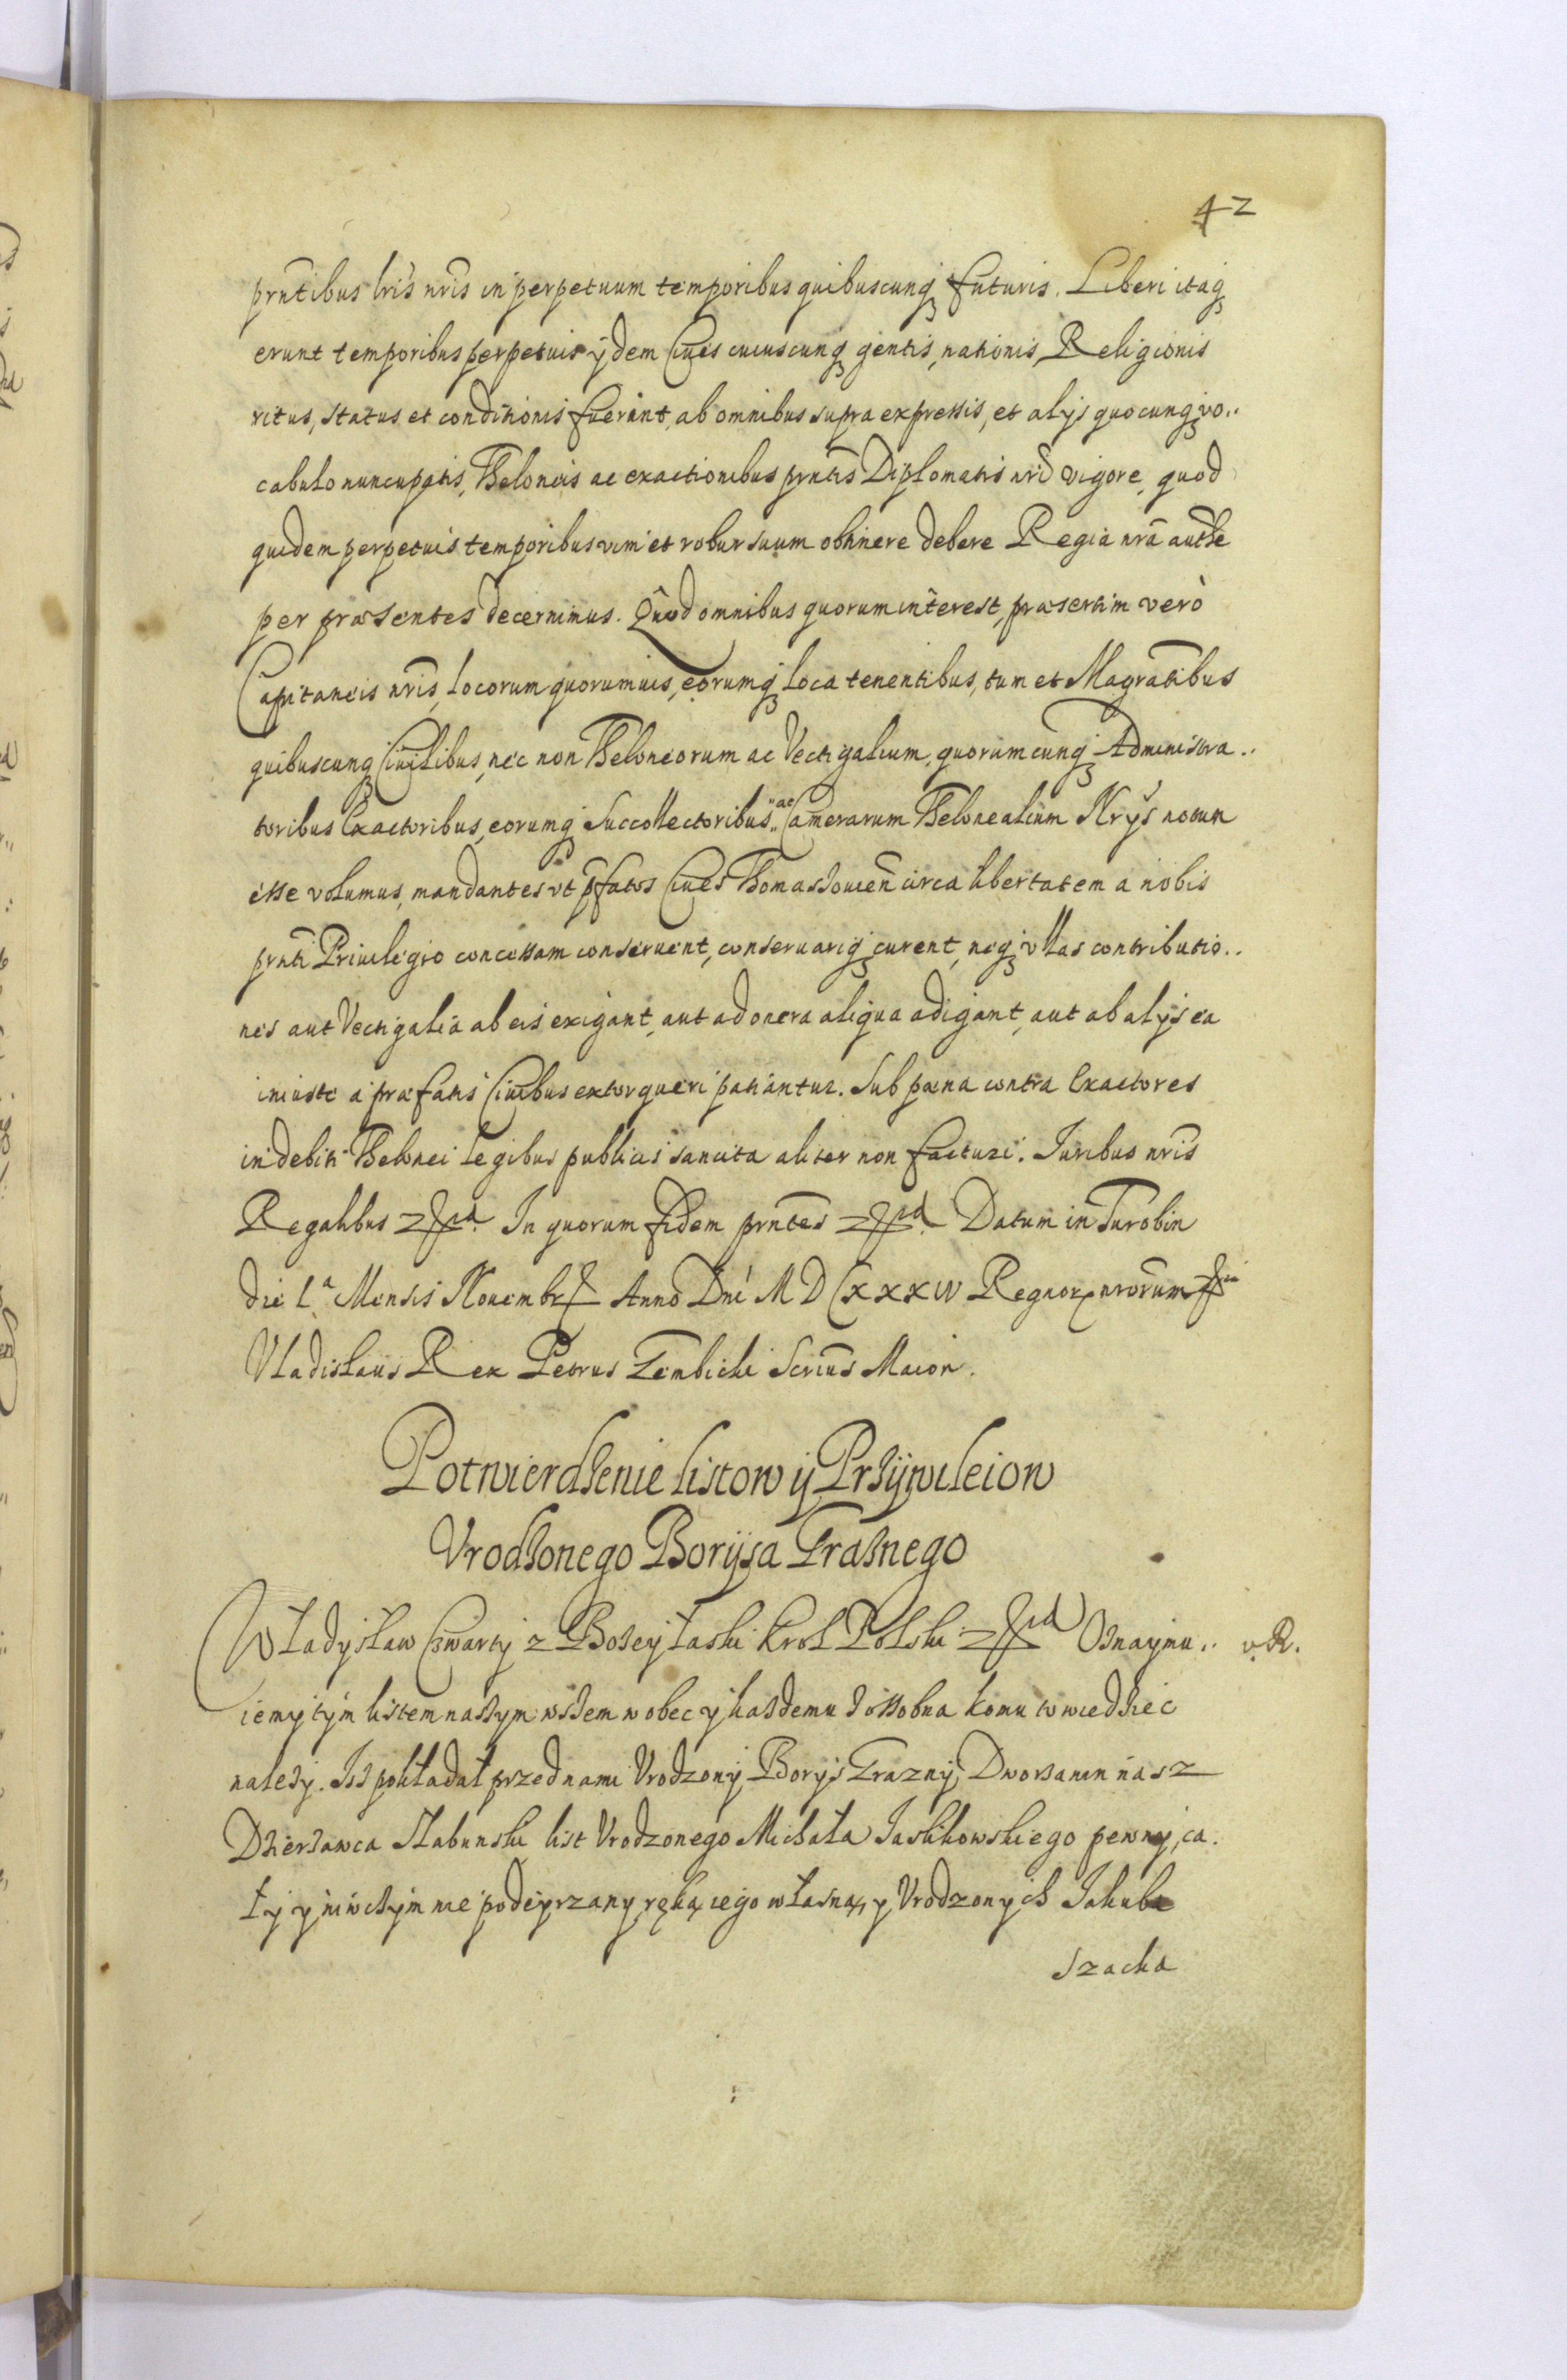 42
prntibus lris nris in perpetuum temporibus quibuscunq futuris. Liberi itaq
erunt temporibus perpetuis ijdem Ciues cuiuscunq gentis, nationis, Religionis
ritus, status et conditionis fuerint, ab omnibus supra expressis, et alijs quocunq vo..
cabulo nuncupatis, Theloneis ac exactionibus prntis Diplomatis nri vigore, quod
quidem perpetuis temporibus vim et robur suum obtinere debere Regia nra authe
per præsentes decernimus. Quod omnibus quorum interest, præsertim verò
Capitaneis nris, locorum quorumuis, eorumq loca tenentibus, tum et Magratibus
quibuscunq Ciuilibus, nec non Theloneorum ac Vectigalium, quorumcunq Administra..
toribus Exactoribus, eorumq Succollectoribus "ac" Camerarum Thelonealium Nrijs notum
esse volumus, mandantes vt pfatos Ciues Thomassouien circa libertatem a nobis
prnti Priuilegio concessam conseruent, conseruariq curent, neq vllas contributio..
nes aut Vectigalia ab eis exigant, aut ad onera aliqua adigant, aut ab alijs ea
iniuste a præfatis Ciuibus extorqueri patiantur. Sub pæna contra Exactores
indebiti Thelonei legibus publicis sancita aliter non facturi. Iuribus nris
Regalibus In quorum fidem prntes Datum in Turobin
die Mensis Nouembr Anno Dni M D C x x x iv Regnor nrorum
Vladislaus Rex Petrus Gembicki Scrius Maior.
Potwierdzenie listow ij Przijwileiow
Vrodzonego Borijsa Grażnego
Władysław Czwarty z Bożey łaski Krol Polski Oznaymu.. v.R.
iemy tym listem naszym wszem wobec y każdemu z ossobna komu to wiedzieć
należy. Isz pokładał przed nami Vrodzony Borys Grazny, Dworzanin nasz
Dzierżawca Słabunski list Vrodzonego Michała Iaslikowskiego pewny, ca.
ły y ni wczym nie podeyrzany, ręką iego własną, y Vrodzonych Iakuba
Szacka